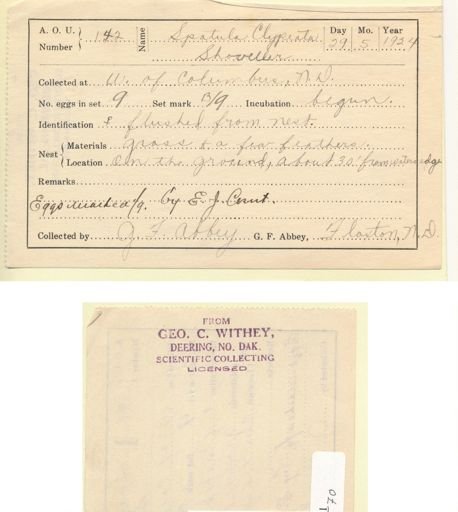 A. O. U. Number 142 Name Spatula Clypeata Shoveller Day 29 Mo. 5 Year 1924
Collected at W. of Columbus, N.D.
No. eggs in set 9 Set mark /9 Incubation begun.
Identification flushed from nest.
Nest Materials Grass & a few feathers.
Location On the ground, about 30' from waters edge
Remarks
Eggs by E. J. Court.
Collected by G F Abbey G. F. Abbey, Flaxton, N.D.
FROM
GEO. C. WITHEY,
DEERING, NO. DAK.
SCIENTIFIC COLLECTING
LICENSED
70